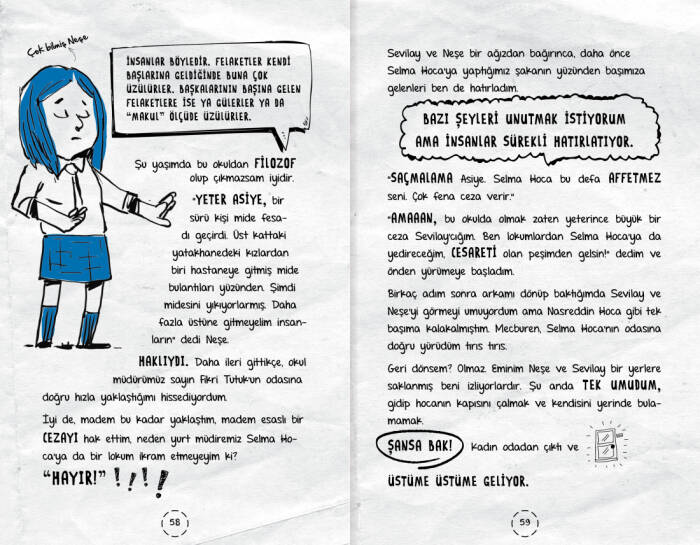 Çok bilmiş Neşe
İNSANLAR BÖYLEDİR. FELAKETLER KENDİ
BAŞLARINA GELDİĞİNDE BUNA ÇOK
ÜZÜLÜRLER. BAŞKALARININ BAŞINA GELEN
FELAKETLERE İSE YA GÜLERLER YA DA
“MAKUL” ÖLÇÜDE ÜZÜLÜRLER.
Şu yaşımda bu okuldan FİLOZOF
olup çıkmazsam iyidir.
“YETER ASİYE, bir
sürü kişi mide fesa-
dı geçirdi. Üst kattaki
yatakhanedeki kızlardan
biri hastaneye gitmiş mide
bulantıları yüzünden. Şimdi
midesini yıkıyorlarmış. Daha
fazla üstüne gitmeyelim insan-
ların” dedi Neşe.
HAKLIYDI. Daha ileri gittikçe, okul
müdürümüz sayın Fikri Tutuk'un odasına
doğru hızla yaklaştığımı hissediyordum.
İyi de, madem bu kadar yaklaştım, madem esaslı bir
CEZAYI hak ettim, neden yurt müdiremiz Selma Ho-
ca'ya da bir lokum ikram etmeyeyim ki?
“HAYIR!” !!!!
58
Sevilay ve Neşe bir ağızdan bağırınca, daha önce
Selma Hoca'ya yaptığımız şakanın yüzünden başımıza
gelenleri ben de hatırladım.
BAZI ŞEYLERİ UNUTMAK İSTİYORUM
AMA İNSANLAR SÜREKLİ HATIRLATIYOR.
“SAÇMALAMA Asiye. Selma Hoca bu defa AFFETMEZ
seni. Çok fena ceza verir.”
“AMAAAN, bu okulda olmak zaten yeterince büyük bir
ceza Sevilay'cığım. Ben lokumlardan Selma Hoca'ya da
yedireceğim, CESARETİ olan peşimden gelsin!” dedim ve
önden yürümeye başladım.
Birkaç adım sonra arkamı dönüp baktığımda Sevilay ve
Neşe'yi görmeyi umuyordum ama Nasreddin Hoca gibi tek
başıma kalakalmıştım. Mecburen, Selma Hoca'nın odasına
doğru yürüdüm tırıs tırıs.
Geri dönsem? Olmaz. Eminim Neşe ve Sevilay bir yerlere
saklanmış beni izliyorlardır. Şu anda TEK UMUDUM,
gidip hocanın kapısını çalmak ve kendisini yerinde bula-
mamak.
ŞANSA BAK! Kadın odadan çıktı ve
ÜSTÜME ÜSTÜME GELİYOR.
59